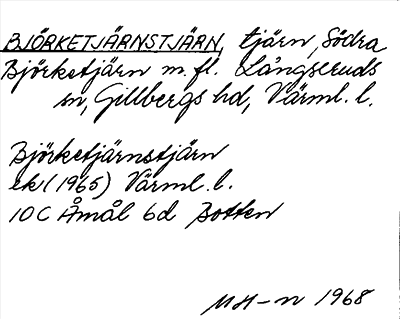 BJÖRKETJÄRNSTJÄRN, tjärn, Södra
Björketjärn m. fl. Långseruds
sn, Gillbergs hd, Värml. l.
Björketjärnstjärn
ek (1965) Värml. l.
10C Åmål 6d Botten
MH-n 1968